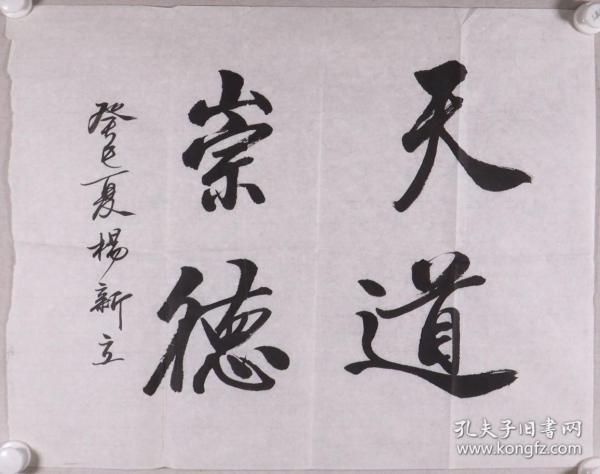 天道
崇德
癸巳夏楊新立
孔夫子旧书网
www.kongfz.com